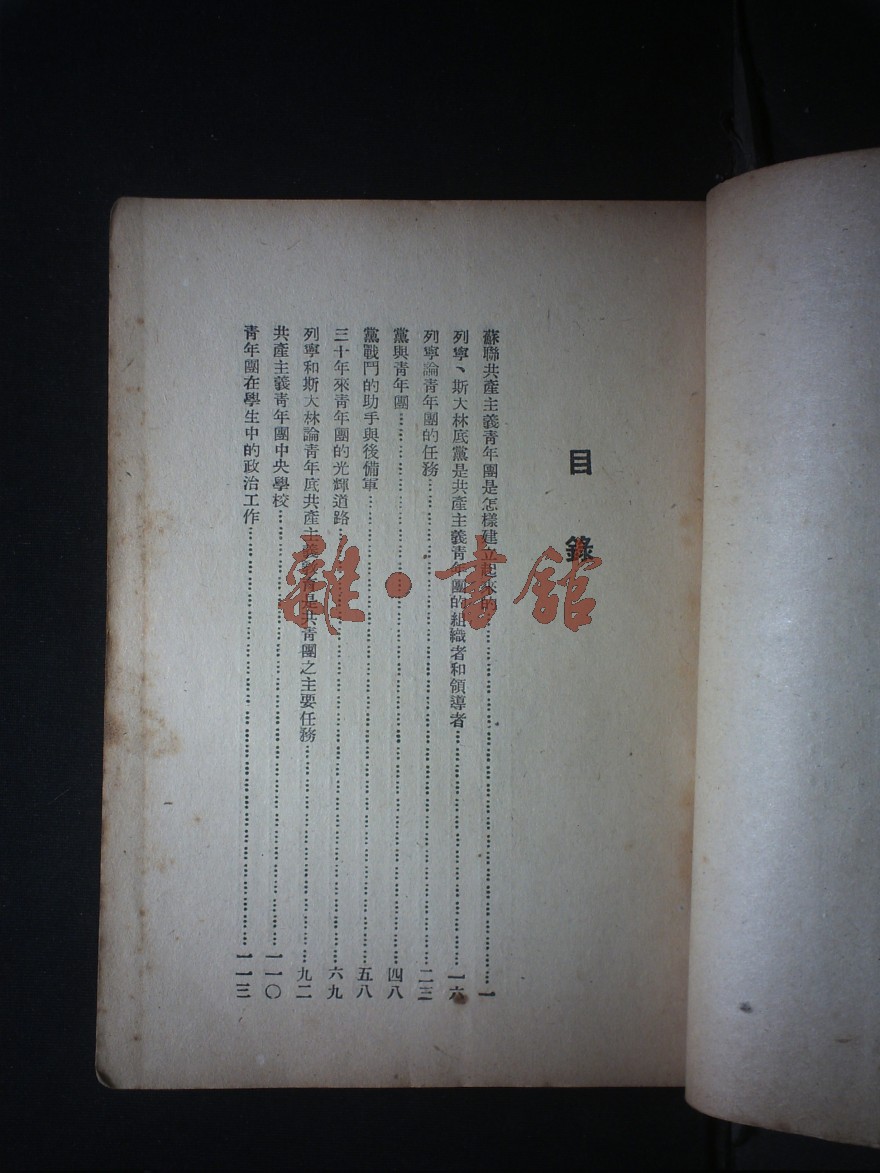 目錄
蘇聯共產主義青年團是怎樣建立起來的……一
列寧、斯大林底黨是共產主義青年團的組織者和領導者……一六
列寧論青年團的任務……二三
黨與青年團……四八
黨戰鬥的助手與後備軍……五八
三十年來青年團的光輝道路……六九
列寧和斯大林論青年底共產主義教育是共青團之主要任務……九二
共產主義青年團中央學校……一一〇
青年團在學生中的政治工作……一一三
雜·書館